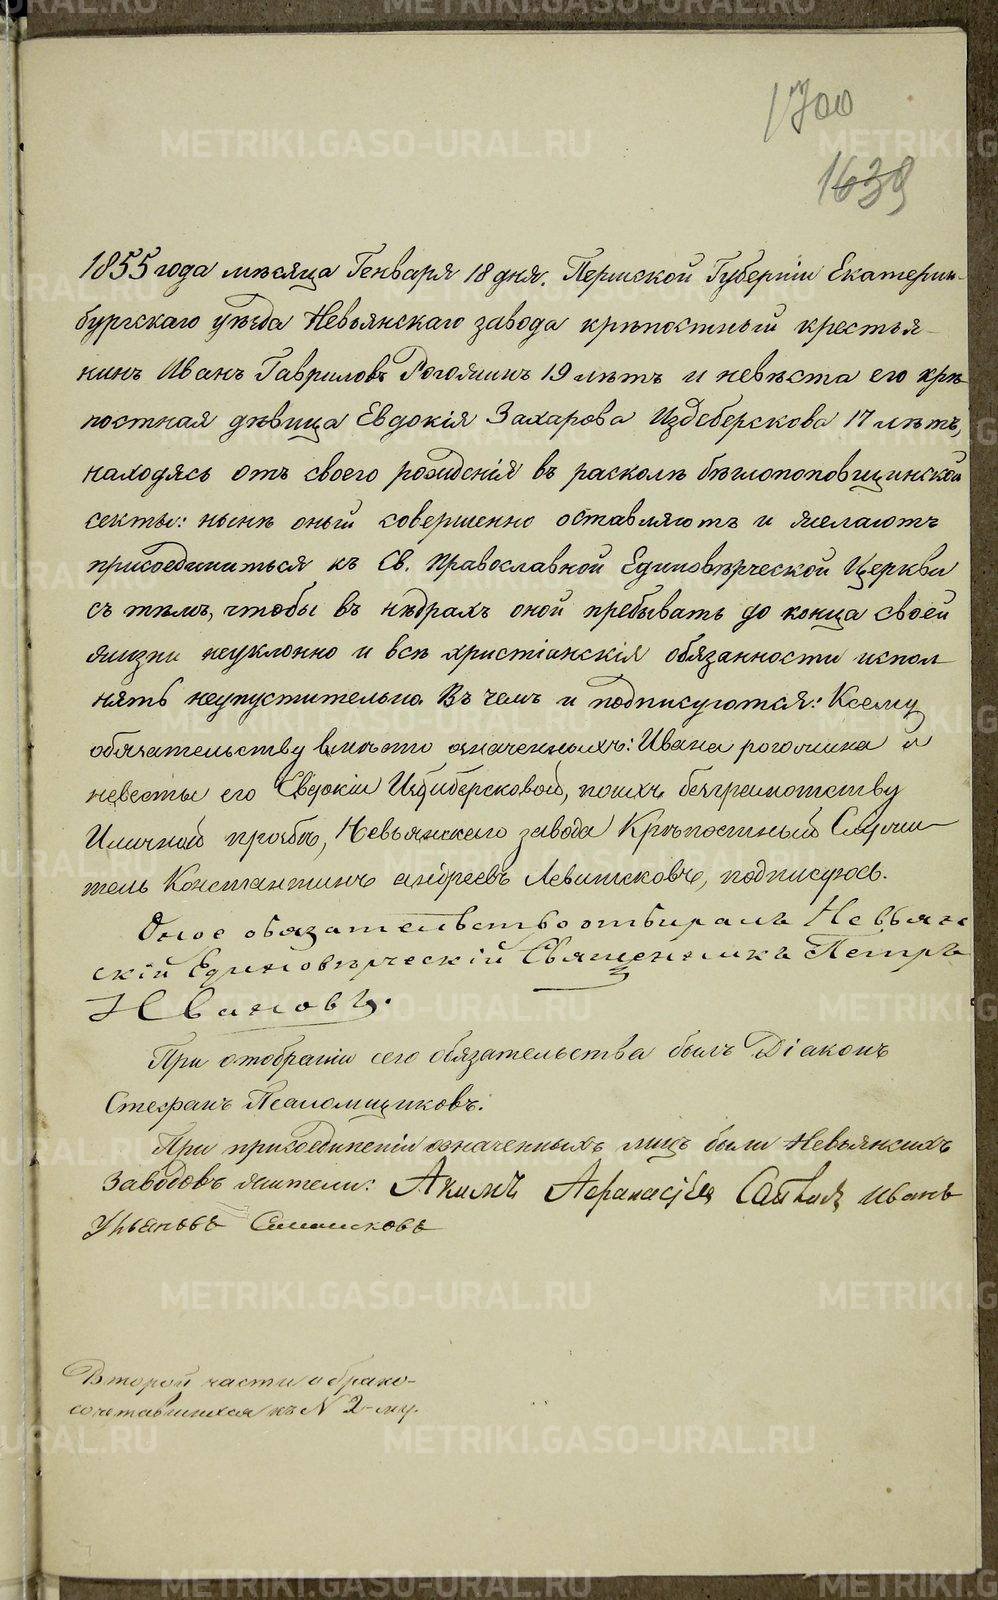 1700
1639
1855 года мѣсяца Генваря 18 дня. Пермской Губерніи Екатерин-
бургскаго уѣзда Невьянскаго завода крѣпостный крестья-
нинъ Иванъ Гавриловъ Рогожинъ 19 лѣтъ и невѣста его крѣ-
постная дѣвица Евдокія Захарова 17 лѣтъ,
находясь отъ своего рожденія въ расколѣ бѣглопоповщинской
секты: нынѣ оный совершенно оставляютъ и желаютъ
присоединиться къ Св. Православной Единовѣрческой Церкви
съ тѣмъ, чтобы въ нѣдрахъ оной пребывать до конца своей
жизни неуклонно и всѣ христіанскія обязанности испол
нять неупустительно. Въ чемъ и подписуются: Ксему
обязательству вмѣсто означенныхъ: Ивана рогожина и
невесты его Евдокіи поихъ безграмотству
Иличной прозбѣ, Невьянскаго завода Крѣпостный Служи-
тель Константинъ андреевъ подписуюсь.
Оное обязательство отбиралъ Невьян
скій Единовѣрческій Священникъ Петръ
Ивановъ.
При отобраніи сего обязательства былъ Діаконъ
Стефанъ Псаломщиковъ.
При присоединеніи означенныхъ лицъ были Невьянскихъ
Заводовъ жители: Акимъ Иванъ
Второй части о брако-
сочетавшихся къ N 2-му.
METRIKI.GASO-URAL.RU